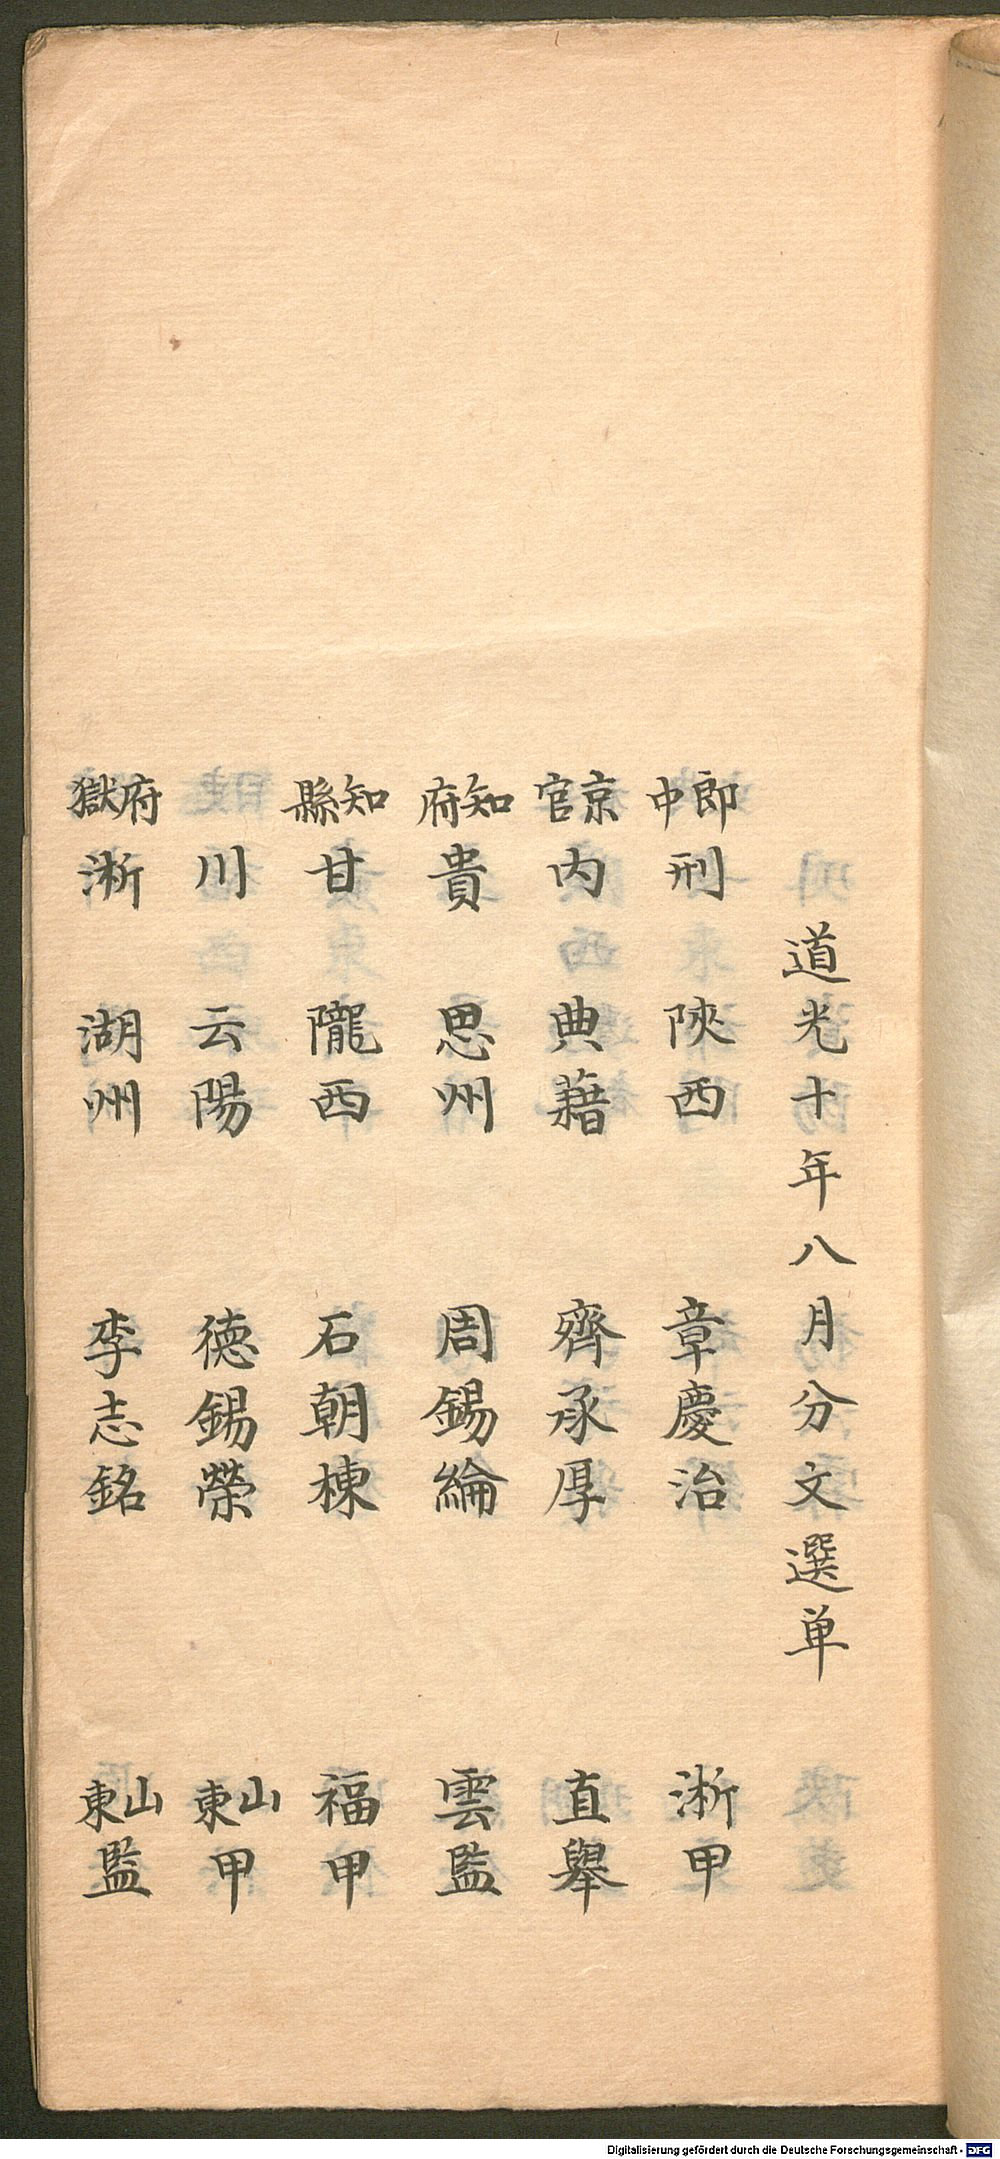 道光十年八月分文選单
郎中 刑 陝西 章慶治 淅甲
京官 内 典藉 齊承厚 直舉
知府 貴 思州 周錫綸 雲監
知縣 甘 隴西 石朝棟 福甲
川 云陽 德錫榮 山東甲
府獄 淅 湖州 李志銘 山東監
Digitalisierung gefördert durch die Deutsche Forschungsgemeinschaft - DFG